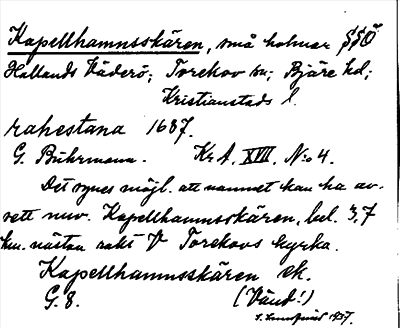 Kapellhamnsskären, små holmar SSÖ
Hallands Väderö; Torekov sn; Bjäre hd;
Kristianstads l.
rahestana 1687.
G. Buhrmann. KrA, XVII, N:o 4.
Det synes möjl. att namnet kan ha av-
sett nuv. Kapellhamnsskären, bel. 3,7
km. nästan rakt V Torekovs kyrka.
Kapellhamnsskären ek.
G. 8. (Vänd!)
1937.